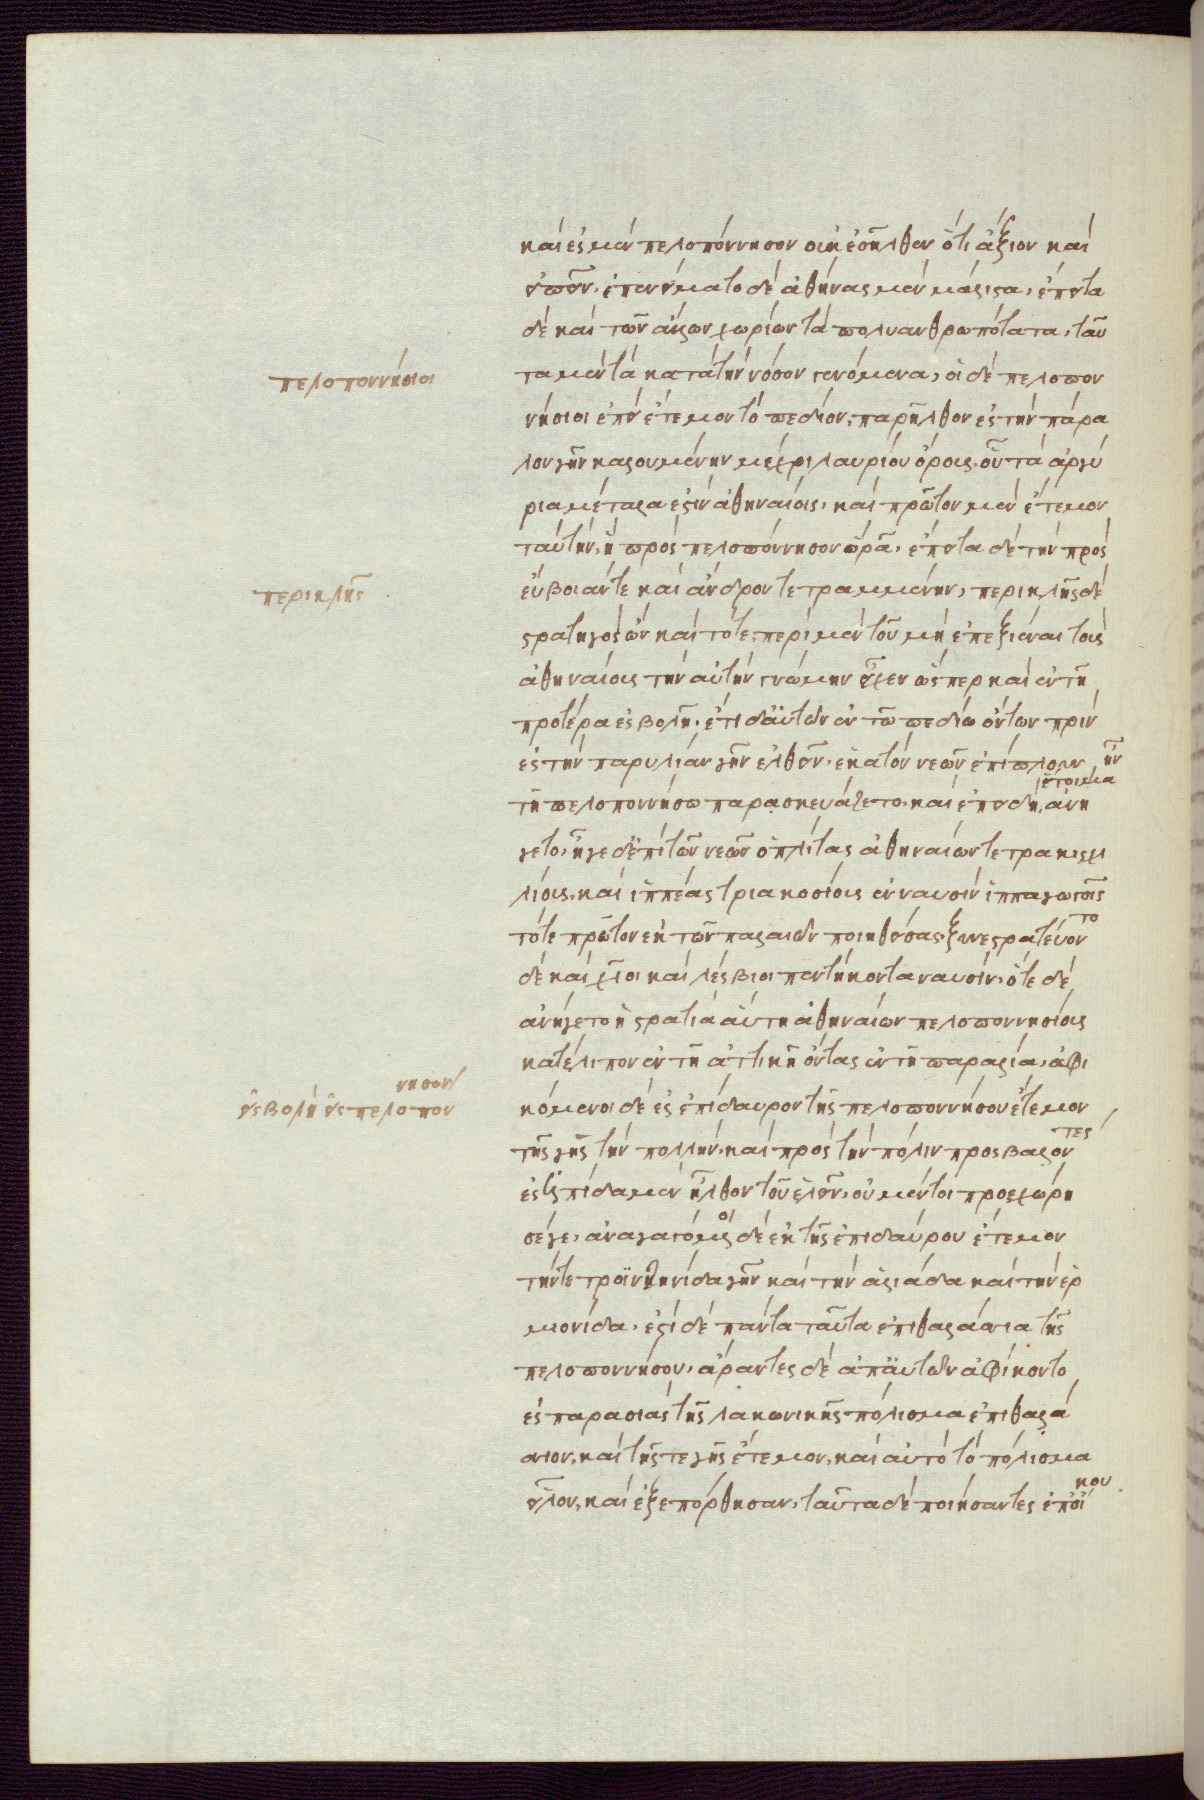 καὶ ἐς μὲν πελοπόννησον οὐκ ἐσῆλθεν ὅτι ἄξιον καὶ
εἰπεῖν. ἐπενείματο δὲ ἀθήνας μὲν μάλιστα, ἔπειτα
δὲ καὶ τῶν ἄλλων χωρίων τὰ πολυανθρωπότατα, ταῦ
πελοποννήσιοι
τα μὲν τὰ κατὰ τὴν νόσον γενόμενα, οἱ δὲ πελοπον
νήσιοι ἐπεὶ ἔτεμον τὸ πεδίον, παρῆλθον ἐς τὴν πάρα
λον γῆν καλουμένην μέχρι λαυρίου ὄρους. οὗ τὰ ἀργύ
ρια μέταλλα ἐστὶν ἀθηναίοις, καὶ πρῶτον μὲν ἔτεμον
ταύτην, ἣ πρὸς πελοπόννησον ὁρᾶ, ἔπειτα δὲ τὴν πρὸς
περικλῆς
εὔβοιάν τε καὶ ἄνδρον τετραμμένην, περικλῆς δὲ
στρατηγὸς ὢν καὶ τότε, περὶ μὲν τοῦ μὴ ἐπεξιέναι τοὺς
ἀθηναίους τὴν αὐτὴν γνώμην εἶχεν ὥσπερ καὶ ἐν τῆ
προτέρα ἐσβολῆ, ἔτι δ' αὐτῶν ἐν τῶ πεδίω ὄντων πρὶν
ἐς τὴν παραλίαν γῆν ἐλθεῖν, ἑκατὸν νεῶν ἐπίπλουν
τῆ πελοποννήσω παρασκευάζετο, καὶ ἐπειδὴ ἑτοῖμα ἦν, ἀνή
γετο, ἦγε δ' ἐπὶ τῶν νεῶν ὁπλίτας ἀθηναίων τετρακισχι
λίους, καὶ ἱππέας τριακοσίους ἐν ναυσὶν ἱππαγωγοῖς
τότε πρῶτον ἐκ τῶν παλαιῶν ποιηθείσαις, ξυνεστρατεύοντο
δὲ καὶ χῖοι καὶ λέσβιοι πεντήκοντα ναυσίν, ὅτε δὲ
ἀνήγετο ἡ στρατιὰ αὕτη ἀθηναίων πελοποννησίους
κατέλιπον ἐν τῆ ἀττικῆ ὄντας ἐν τῆ παραλία, ἀφι
εἰσβολὴ εἰς πελοπόννησον
κόμενοι δὲ ἐς ἐπίδαυρον τῆς πελοποννήσου ἔτεμον
τῆς γῆς τὴν πολλήν, καὶ πρὸς τὴν πόλιν προσβαλόντες
ἐς ἐλπίδα μὲν ἦλθον τοῦ ἑλεῖν, οὐ μέντοι προεχώρη
σέ γε, ἀναγαγόμενοι δὲ ἐκ τῆς ἐπιδαύρου ἔτεμον
τήν τε τροιζηνίδα γῆν καὶ τὴν ἁλιάδα καὶ τὴν ἑρ
μιονίδα, ἐστὶ δὲ πάντα ταῦτα ἐπιθαλάσσια τῆς
πελοποννήσου, ἄραντες δὲ ἀπ' αὐτῶν ἀφίκοντο
ἐς πρασιὰς τῆς λακωνικῆς πόλισμα ἐπιθαλά
σσιον, καὶ τῆς τε γῆς ἔτεμον, καὶ αὐτὸ τὸ πόλισμα
εἷλον, καὶ ἐξεπόρθησαν, ταῦτα δὲ ποιήσαντες ἐπ' οἴκου